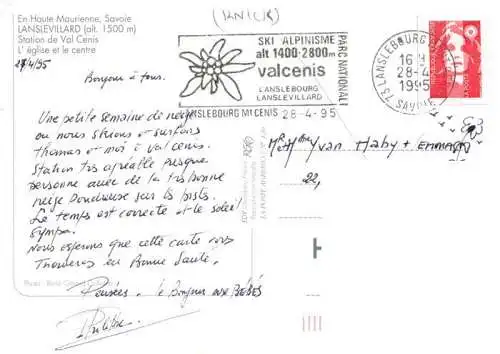 En Haute Maurienne, Savoie
LANSLEVILLARD (alt. 1500 m)
Station de Val Cenis
L' église et le centre
27/4/95
Bonjour à tous.
Une petite semaine de neige
ou nous skions et surfons
thomas et moi à Val cenis.
Station très agréable presque
personne avec de la très bonne
neige Poudreuse sur les pistes.
Le temps est correcte et le soleil
Sympa.
Nous espérons que cette carte vous
Trouvera en Bonne Santé.
Pensées. le Bonjour aux BÉBÉS
SKI ALPINISME
alt 1400-2800m
valcenis
LANSLEBOURG
LANSLEVILLARD
PARC NATIONAL
LANSLEBOURG Mt CENIS 28-4-95
73 LANSLEBOURG
16 H
28-4
1995
SAVOIE
Mr et Mme Yvan Haby +
22,